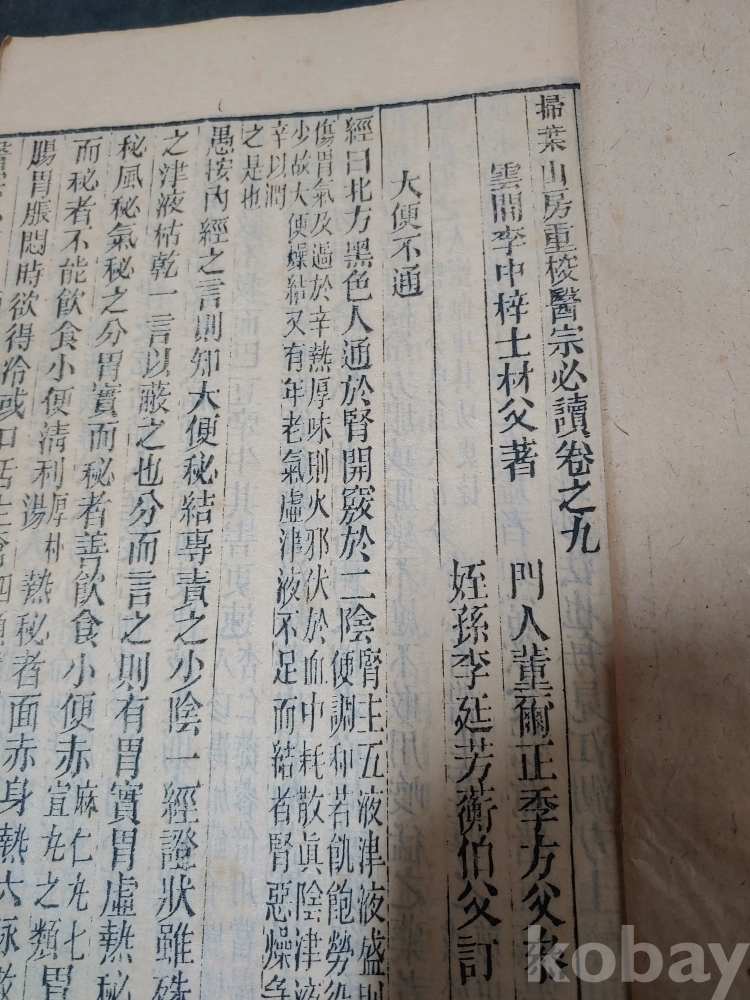 掃葉山房重校醫宗必讀卷之九
雲間李中梓士材父著
門人董爾正季方父參
姪孫李廷芳蘅伯父訂
大便不通
經曰北方黑色入通於腎開竅於二陰腎主五液津液盛則
便調和若飢飽勞役
傷胃氣及過於辛熱厚味則火邪伏於血中耗散眞陰津液
少故大便燥結又有年老氣虛津液不足而結者腎惡燥急
辛以潤
之是也
愚按內經之言則知大便秘結專責之少陰一經證狀雖殊
之津液枯乾一言以蔽之也分而言之則有胃實胃虛熱秘
秘風秘氣秘之分胃實而秘者善飲食小便赤麻仁丸七
宣丸之類胃
而秘者不能飲食小便清利厚朴
湯熱秘者面赤身熱六脉
腸胃脹悶時欲得冷或口舌生瘡四順
kobay